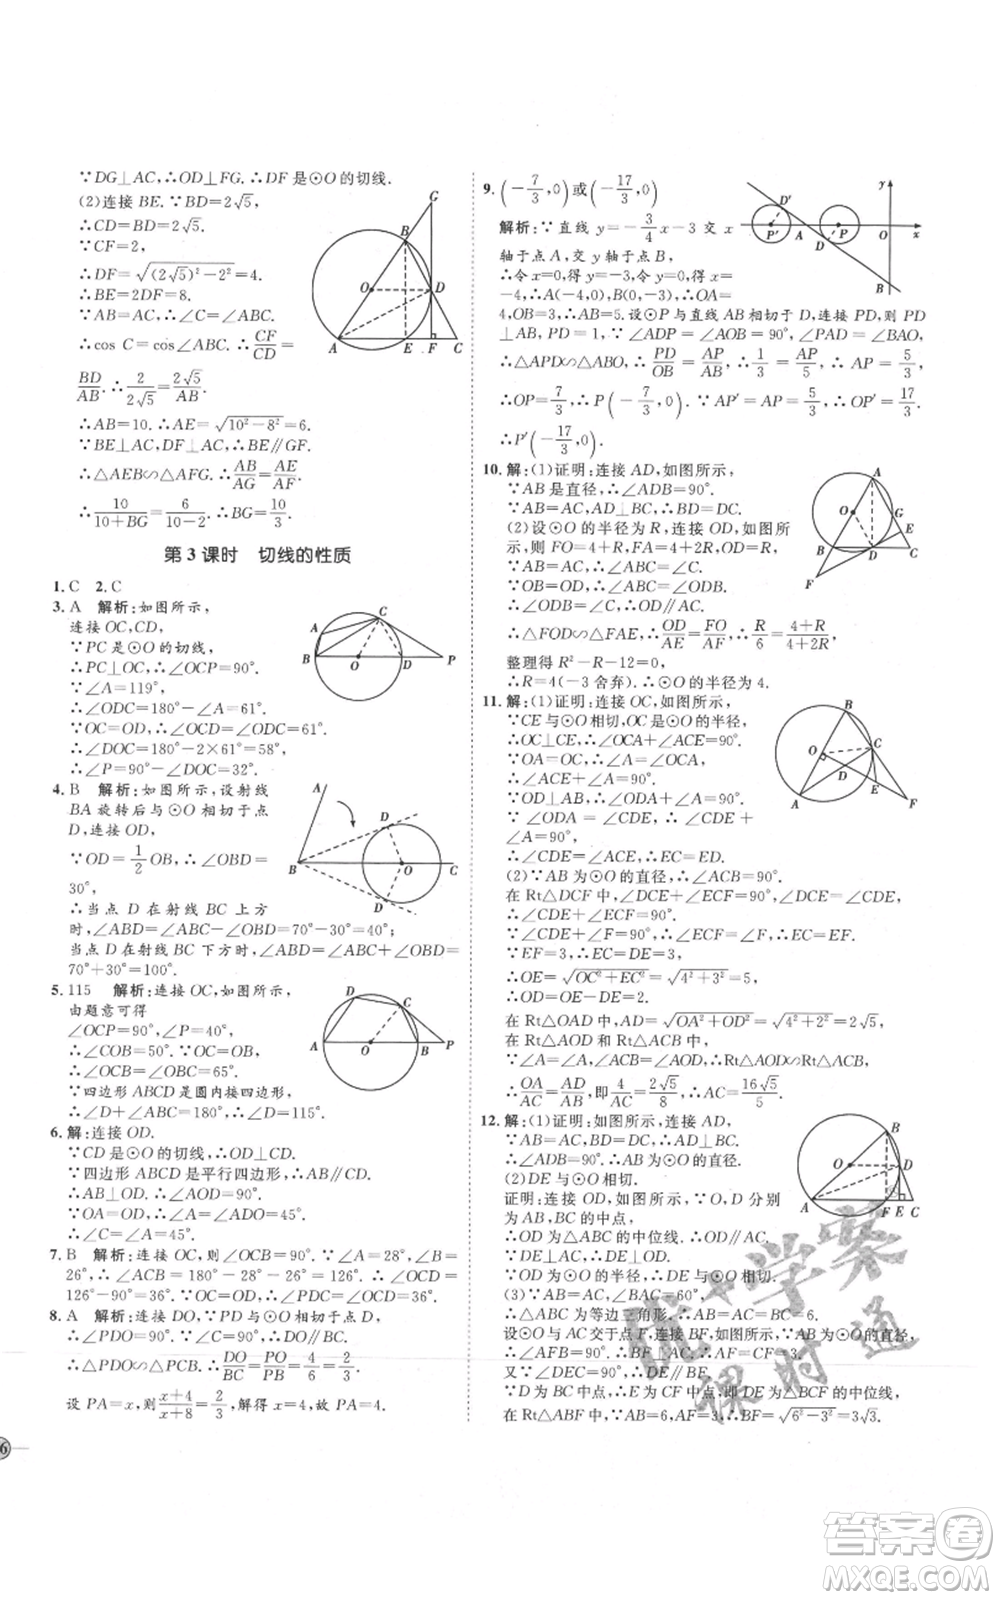 ∵DG⊥AC,∴OD⊥FG.∴DF是⊙O的切线.
(2)连接BE.∵BD=2√5,
∴CD=BD=2√5.
∵CF=2,
∴DF=√((2√5)²-2²)=4.
∴BE=2DF=8.
∵AB=AC,∴∠C=∠ABC.
∴cos C=cos∠ABC. ∴CF/CD=
BD/AB. ∴2/(2√5)=2√5/AB.
∴AB=10. ∴AE=√(10²-8²)=6.
∵BE⊥AC,DF⊥AC,∴BE∥GF.
∴△AEB∽△AFG. ∴AB/AG=AE/AF.
∴10/(10+BG)=6/(10-2). ∴BG=10/3.
第3课时 切线的性质
1. C 2. C
3. A 解析:如图所示,
连接OC,CD,
∵PC是⊙O的切线,
∴PC⊥OC,∴∠OCP=90°.
∵∠A=119°,
∴∠ODC=180°-∠A=61°.
∴∠DOC=180°-2×61°=58°,
∴∠P=90°-∠DOC=32°.
4. B 解析:如图所示,设射线
BA旋转后与⊙O相切于点
D,连接OD,
∵OD=1/2 OB,∴∠OBD=
30°.
∴当点D在射线BC上方
时,∠ABD=∠ABC-∠OBD=70°-30°=40°;
当点D在射线BC下方时,∠ABD=∠ABC+∠OBD=
70°+30°=100°.
5. 115 解析:连接OC,如图所示,
由题意可得
∠OCP=90°,∠P=40°,
∴∠COB=50°. ∵OC=OB,
∴∠OCB=∠OBC=65°.
∵四边形ABCD是圆内接四边形,
∴∠D+∠ABC=180°,∴∠D=115°.
6. 解:连接OD.
∵CD是⊙O的切线,∴OD⊥CD.
∵四边形ABCD是平行四边形,∴AB∥CD.
∴AB⊥OD. ∴∠AOD=90°.
∵OA=OD,∴∠A=∠ADO=45°.
∴∠C=∠A=45°.
7. B 解析:连接OC,则∠OCB=90°. ∵∠A=28°,∠B=
26°,∴∠ACB=180°-28°-26°=126°. ∴∠OCD=
126°-90°=36°. ∵OC=OD,∴∠ODC=∠OCD=36°.
8. A 解析:连接DO,∵PD与⊙O相切于点D,
∴∠PDO=90°. ∵∠C=90°,∴DO∥BC.
∴△PDO∽△PCB. ∴DO/BC=PO/PB=4/6=2/3.
设PA=x,则(x+4)/(x+8)=2/3,解得x=4. ∴PA=4.
9. (-7/3,0)或(-17/3,0)
解析:∵直线y=-3/4 x-3交x
轴于点A,交y轴于点B,
∴令x=0,得y=-3,令y=0,得x=
-4,∴A(-4,0),B(0,-3),∴OA=
4,OB=3,∴AB=5.设⊙P与直线AB相切于D,连接PD,则PD
⊥AB,PD=1,∵∠ADP=∠AOB=90°,∠PAD=∠BAO,
∴△APD∽△ABO,∴PD/OB=AP/AB,∴1/3=AP/5,∴AP=5/3,
∴OP=7/3,∴P(-7/3,0). ∵AP′=AP=5/3,∴OP′=17/3.
∴P′(-17/3,0).
10. 解:(1)证明:连接AD,如图所示,
∵AB是直径,∴∠ADB=90°.
∵AB=AC,AD⊥BC,∴BD=DC.
(2)设⊙O的半径为R,连接OD,如图所
示,则FO=4+R,FA=4+2R,OD=R.
∵AB=AC,∴∠ABC=∠C.
∵OB=OD,∴∠ABC=∠ODB.
∴∠ODB=∠C. ∴OD∥AC.
∴△FOD∽△FAE,∴OD/AE=FO/AF. ∴R/6=(4+R)/(4+2R).
整理得R²-R-12=0.
∴R=4(-3舍弃). ∴⊙O的半径为4.
11. 解:(1)证明:连接OC,如图所示,
∵CE与⊙O相切,OC是⊙O的半径,
∴OC⊥CE,∴∠OCA+∠ACE=90°.
∵OA=OC,∴∠A=∠OCA.
∴∠ACE+∠A=90°.
∵OD⊥AB,∴∠ODA+∠A=90°.
∵∠ODA=∠CDE,∴∠CDE+
∠A=90°.
∴∠CDE=∠ACE. ∴EC=ED.
(2)∵AB为⊙O的直径,∴∠ACB=90°.
在Rt△DCF中,∠DCE+∠ECF=90°,∠DCE=∠CDE,
∴∠CDE+∠ECF=90°.
∵∠CDE+∠F=90°,∴∠ECF=∠F,∴EC=EF.
∵EF=3,∴EC=DE=3,
∴OE=√(OC²+EC²)=√(4²+3²)=5.
∴OD=OE-DE=2.
在Rt△OAD中,AD=√(OA²+OD²)=√(4²+2²)=2√5.
在Rt△AOD和Rt△ACB中,
∵∠A=∠A,∠AOD=∠ACB,∴Rt△AOD∽Rt△ACB.
∴OA/AC=AD/AB,即4/AC=2√5/8,∴AC=16√5/5.
12. 解:(1)证明:如图所示,连接AD,
∵AB=AC,BD=DC,∴AD⊥BC.
∴∠ADB=90°,∴AB为⊙O的直径.
(2)DE与⊙O相切.
证明:连接OD,如图所示,∵O,D分别
为AB,BC的中点,
∴OD为△ABC的中位线,∴OD∥AC.
∵DE⊥AC,∴DE⊥OD.
∵OD为⊙O的半径,∴DE与⊙O相切.
(3)∵AB=AC,∠BAC=60°,
∴△ABC为等边三角形,∴AB=AC=BC=6.
设⊙O与AC交于点F,连接BF,如图所示,∵AB为⊙O的直径,
∴∠AFB=90°,∴BF⊥AC,∴AF=CF=3.
又∵∠DEC=90°,∴∠DEC=∠BFC,∴DE∥BF.
∵D为BC中点,∴E为CF中点,即DE为△BCF的中位线.
在Rt△ABF中,∵AB=6,AF=3,∴BF=√(6²-3²)=3√3.
优+学案
课时通
6
答案圈
MXQE.COM